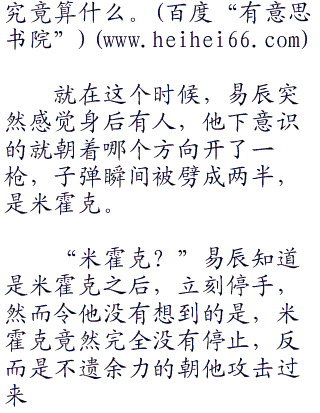 究竟算什么。(百度“有意思
书院”)(www.heihei66.com)
就在这个时候，易辰突
然感觉身后有人，他下意识
的就朝着哪个方向开了一
枪，子弹瞬间被劈成两半，
是米霍克。
“米霍克？”易辰知道
是米霍克之后，立刻停手，
然而令他没有想到的是，米
霍克竟然完全没有停止，反
而是不遗余力的朝他攻击过
来